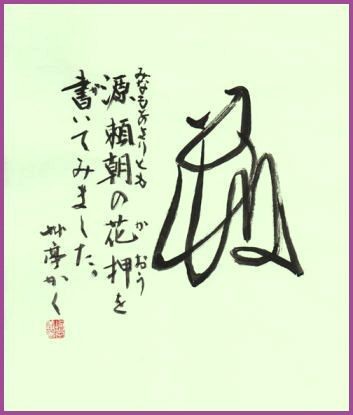 みなもとのよりとも かおう
源頼朝の花押を
書いてみました。
艸亭かく